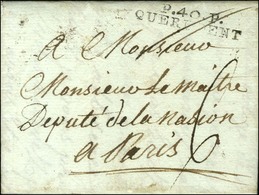 P.40.P.
QUERHENT
A Monsieur
Monsieur le Maitre
Deputé de la Nasion
a Paris 6